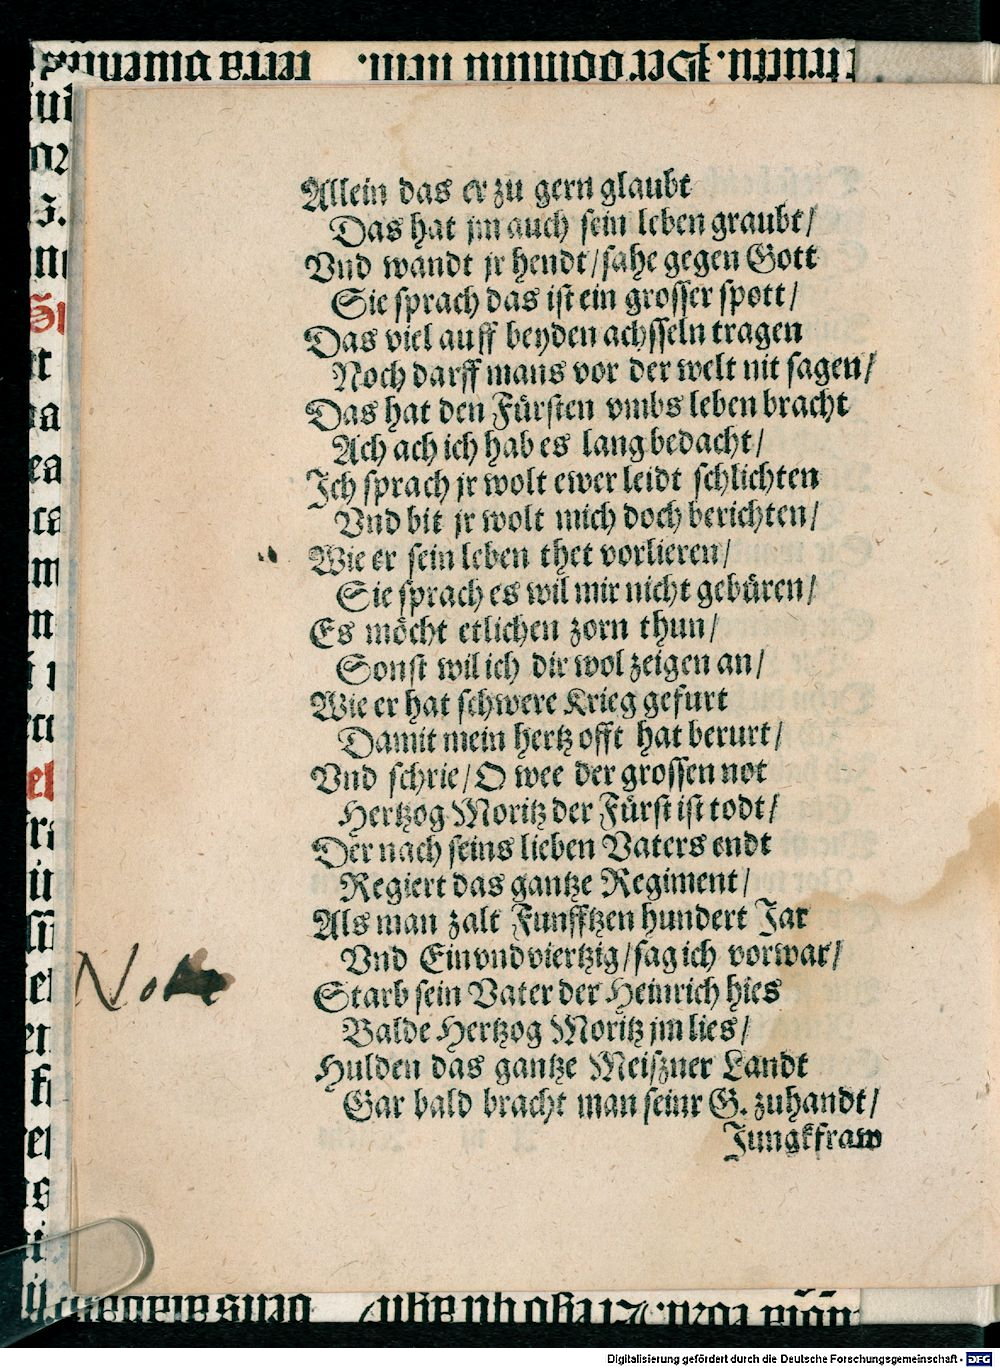 Allein das er zu gern glaubt
Das hat jm auch sein leben graubt/
Vnd wandt jr hendt/sahe gegen Gott
Sie sprach das ist ein grosser spott/
Das viel auff beyden achsseln tragen
Noch darff mans vor der welt nit sagen/
Das hat den Fürsten vmbs leben bracht
Ach ach ich hab es lang bedacht/
Ich sprach jr wolt ewer leidt schlichten
Vnd bit jr wolt mich doch berichten/
Wie er sein leben thet vorlieren/
Sie sprach es wil mir nicht gebüren/
Es möcht etlichen zorn thun/
Sonst wil ich dir wol zeigen an/
Wie er hat schwere Krieg gefurt
Damit mein hertz offt hat berurt/
Vnd schrie/O wee der grossen not
Hertzog Moritz der Fürst ist todt/
Der nach seins lieben Vaters endt
Regiert das gantze Regiment/
Als man zalt Funfftzen hundert Jar
Vnd Einvndviertzig/sag ich vorwar/
Starb sein Vater der Heinrich hies
Balde Hertzog Moritz jm lies/
Hulden das gantze Meißner Landt
Gar bald bracht man seinr G. zuhandt/
Jungkfraw
Digitalisierung gefördert durch die Deutsche Forschungsgemeinschaft - DFG